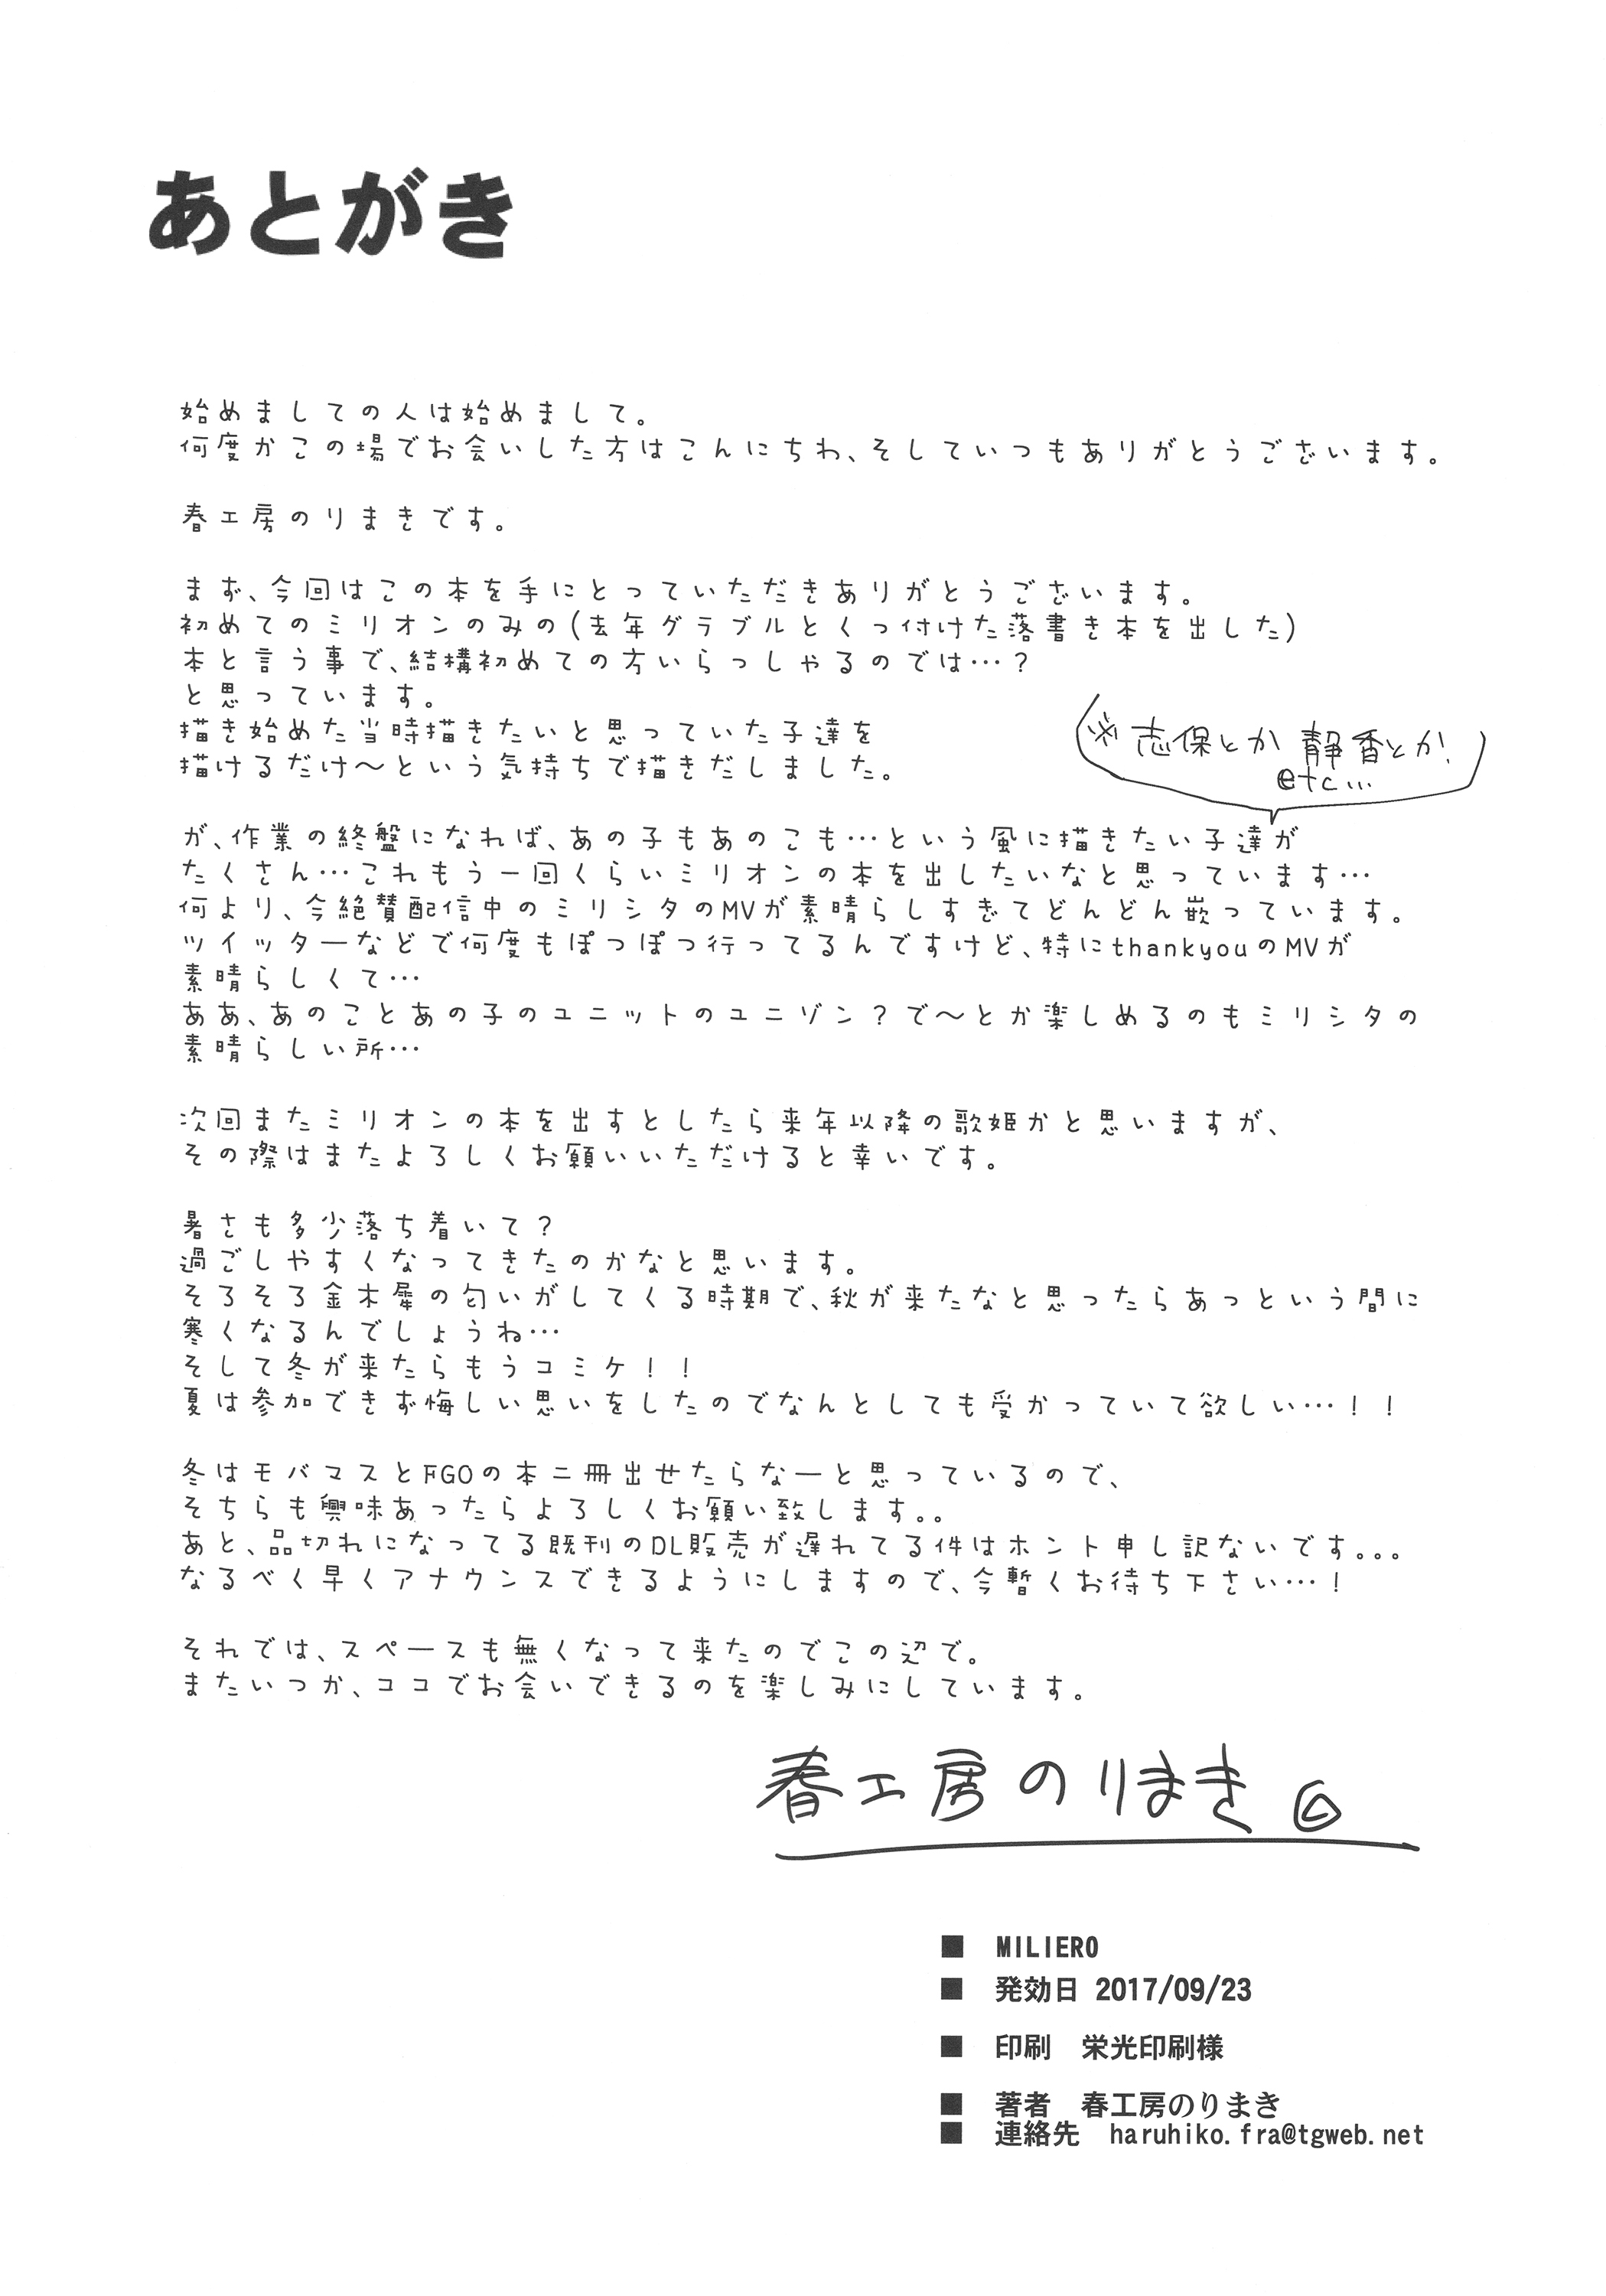 あとがき
始めましての人は始めまして。
何度かこの場でお会いした方はこんにちわ、そしていつもありがとうございます。
春工房のりまきです。
まず、今回はこの本を手にとっていただきありがとうございます。
初めてのミリオンのみの(去年グラブルとくっ付けた落書き本を出した)
本と言う事で、結構初めての方いらっしゃるのでは…?
と思っています。
描き始めた当時描きたいと思っていた子達を
描けるだけ～という気持ちで描きだしました。
※志保とか 静香とか!
etc...
が、作業の終盤になれば、あの子もあのこも…という風に描きたい子達が
たくさん…これもう一回くらいミリオンの本を出したいなと思っています…
何より、今絶賛配信中のミリシタのMVが素晴らしすぎてどんどん嵌っています。
ツイッターなどで何度もぽつぽつ行ってるんですけど、特にthankyouのMVが
素晴らしくて…
ああ、あのことあの子のユニットのユニゾン?で～とか楽しめるのもミリシタの
素晴らしい所…
次回またミリオンの本を出すとしたら来年以降の歌姫かと思いますが、
その際はまたよろしくお願いいただけると幸いです。
暑さも多少落ち着いて?
過ごしやすくなってきたのかなと思います。
そろそろ金木犀の匂いがしてくる時期で、秋が来たなと思ったらあっという間に
寒くなるんでしょうね…
そして冬が来たらもうコミケ!!
夏は参加できず悔しい思いをしたのでなんとしても受かっていて欲しい…!!
冬はモバマスとFGOの本二冊出せたらなーと思っているので、
そちらも興味あったらよろしくお願い致します。。
あと、品切れになってる既刊のDL販売が遅れてる件はホント申し訳ないです。。。
なるべく早くアナウンスできるようにしますので、今暫くお待ち下さい…!
それでは、スペースも無くなって来たのでこの辺で。
またいつか、ココでお会いできるのを楽しみにしています。
春工房のりまき
■ MILIERO
■ 発効日 2017/09/23
■ 印刷 栄光印刷様
■ 著者 春工房のりまき
■ 連絡先 haruhiko.fra@tgweb.net